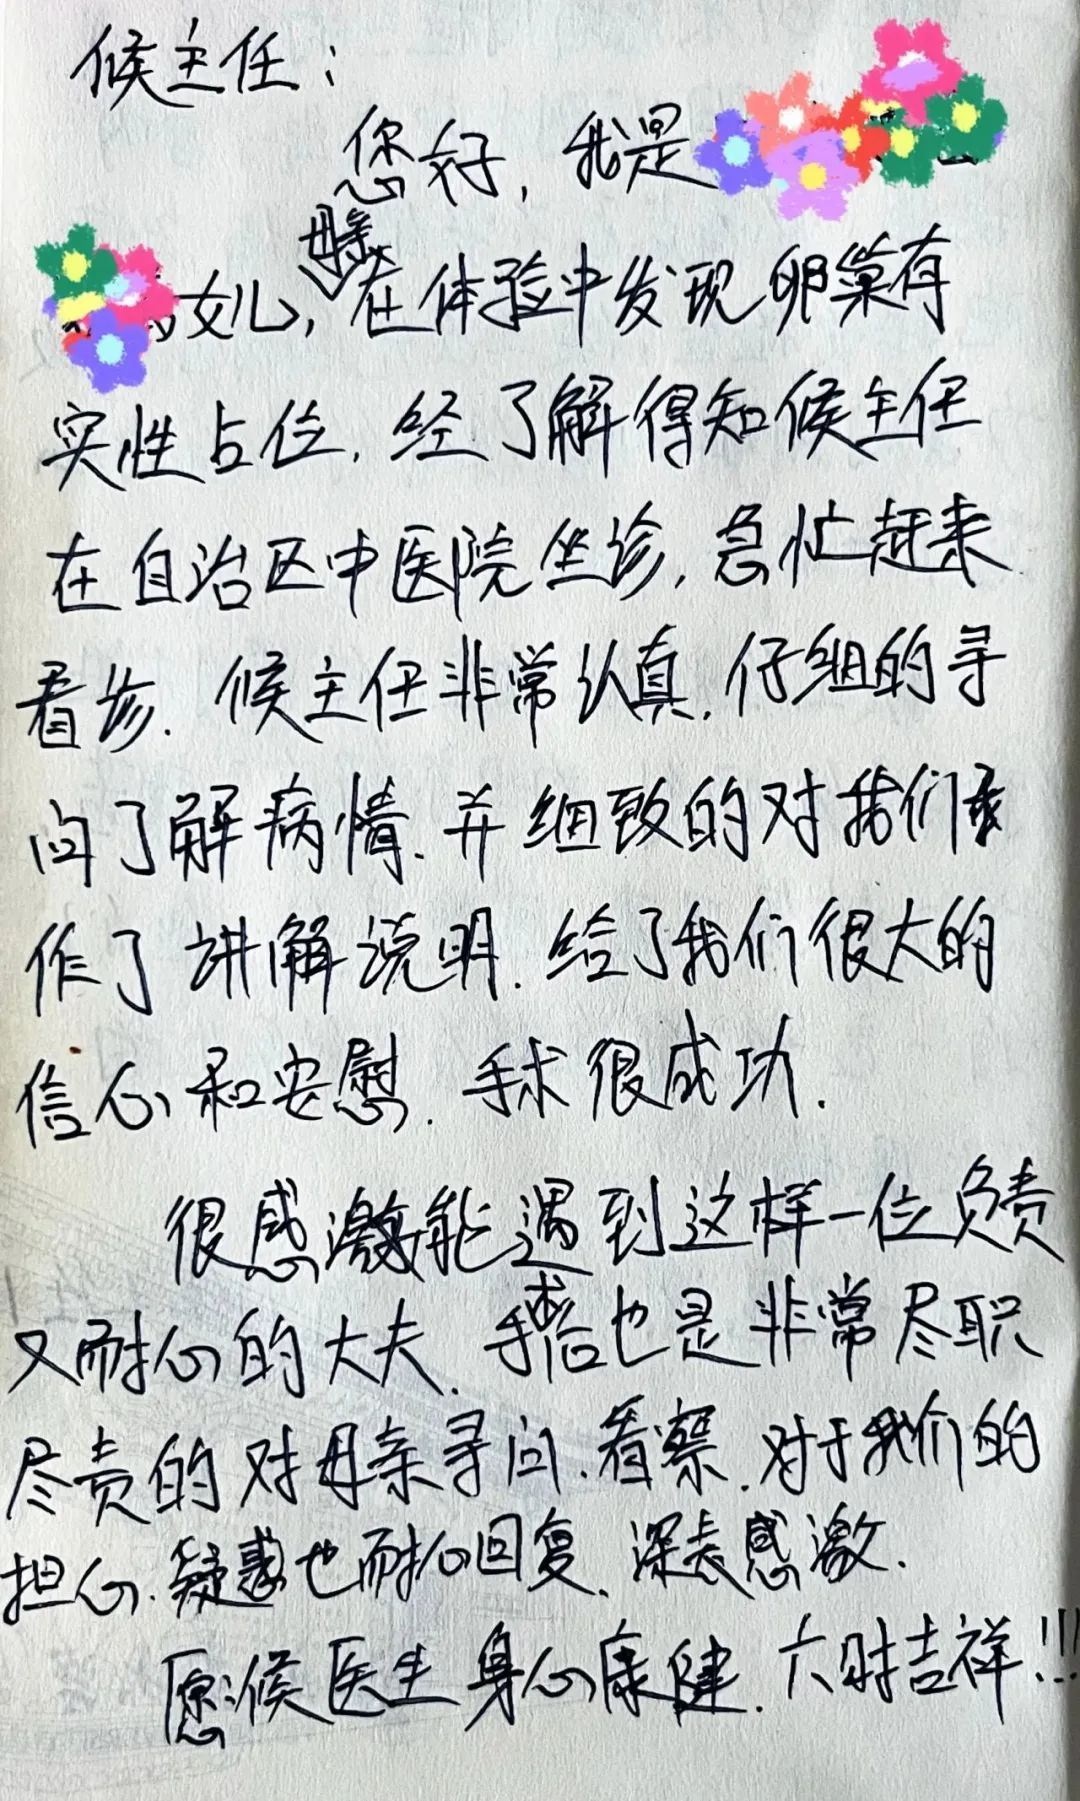 候主任：
您好，我是
女儿，母亲在体验中发现卵巢有
实性占位，经了解得知候主任
在自治区中医院坐诊，急忙赶来
看诊．候主任非常认真，仔细的寻
问了解病情．并细致的对我们
作了讲解说明．给了我们很大的
信心和安慰．手术很成功．
很感激能遇到这样一位负责
又耐心的大夫．手术后也是非常尽职
尽责的对母亲寻问．看察．对于我们的
担心．疑惑也耐心回复．深表感激．
愿候医生身心康健．六时吉祥!!!